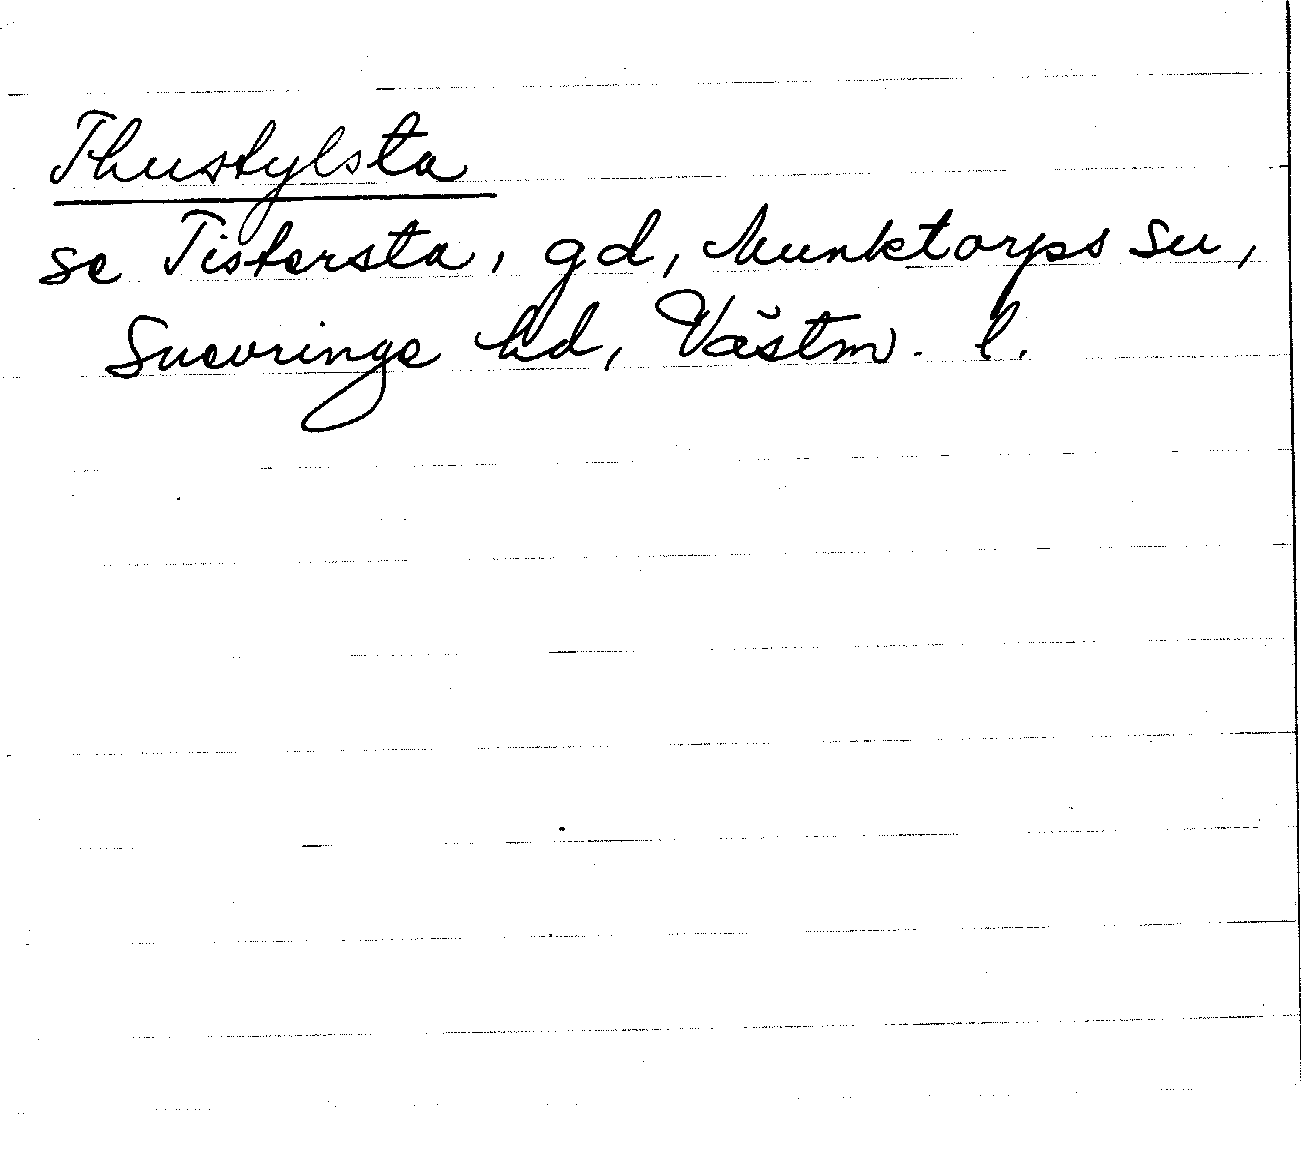 Thustylsta
se Tistersta, gd, Munktorps sn,
Snevringe hd, Västm. l.